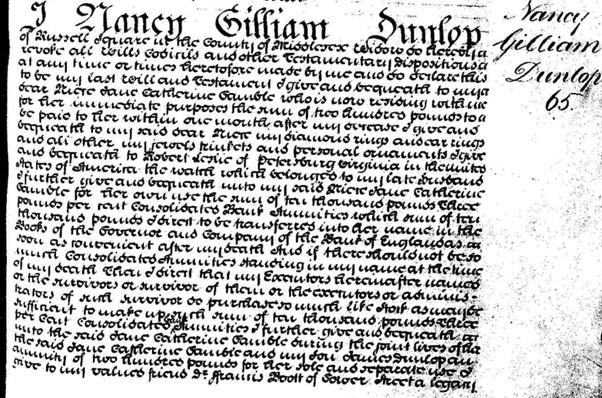 I Nancy Gilliam Dunlop
of Russell Square in the County of Middlesex Widow do hereby
revoke all Wills Codicils and other Testamentary dispositions
at any time or times heretofore made by me and do declare this
to be my last Will and Testament I give and bequeath to my
dear Niece Jane Catherine Gamble who is now residing with me
for her immediate purposes the sum of two hundred pounds to
be paid to her within one month after my decease I give and
bequeath to my said dear Niece my diamond rings and ear rings
and all other my jewels trinkets and personal ornaments I give
and bequeath to Robert Leslie of Petersburg Virginia in the united
States of America the watch which belonged to my late Husband
I further give and bequeath unto my said Niece Jane Catherine
Gamble for her own use the sum of ten thousand pounds Three
pounds per cent Consolidated Bank Annuities which sum of ten
thousand pounds I direct to be transferred into her name in the
Books of the Governor and Company of the Bank of England as
soon as convenient after my death And if there should not be so
much Consolidated Annuities standing in my name at the time
of my death Then I direct that my Executors hereinafter named
or the survivors or survivor of them or the executors or adminis-
trators of such survivor do purchase so much like stock as may be
sufficient to make up such sum of ten thousand pounds Three
per Cent Consolidated Bank Annuities I further give and bequeath
unto the said Jane Catherine Gamble during the joint lives of
the said Jane Catherine Gamble and my son James Dunlop an
annuity of two hundred pounds for her sole and separate use I
give to my valued friend Dr Francis Boott of Gower Street a legacy
Nancy
Gilliam
Dunlop
65.